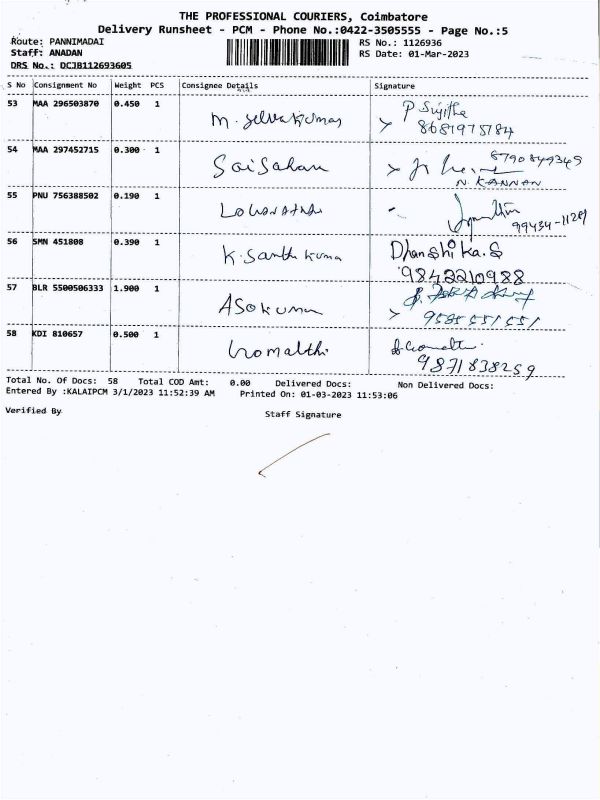 THE PROFESSIONAL COURIERS, Coimbatore
Delivery Runsheet - PCM - Phone No.:0422-3505555 - Page No.:5
Route: PANNIMADAI
RS No.: 1126936
Staff: ANADAN
RS Date: 01-Mar-2023
DRS No.: DCJB112693605
S No Consignment No Weight PCS Consignee Details Signature
53 MAA 296503870 0.450 1 M. Selvakumar P Sujitha
8681975184
54 MAA 297452715 0.300 1 Sai Sahan 8790849349
N. KANNAN
55 PNU 756388502 0.190 1
99434-11201
56 SMN 451808 0.390 1 K. Santhkumar Dhanshika.S
9843210988
57 BLR 5500506333 1.900 1 ASokumar
9585551551
58 KDI 810657 0.500 1 Gomalthi
9871838259
Total No. Of Docs: 58 Total COD Amt: 0.00 Delivered Docs: Non Delivered Docs:
Entered By :KALAIPCM 3/1/2023 11:52:39 AM Printed On: 01-03-2023 11:53:06
Verified By
Staff Signature